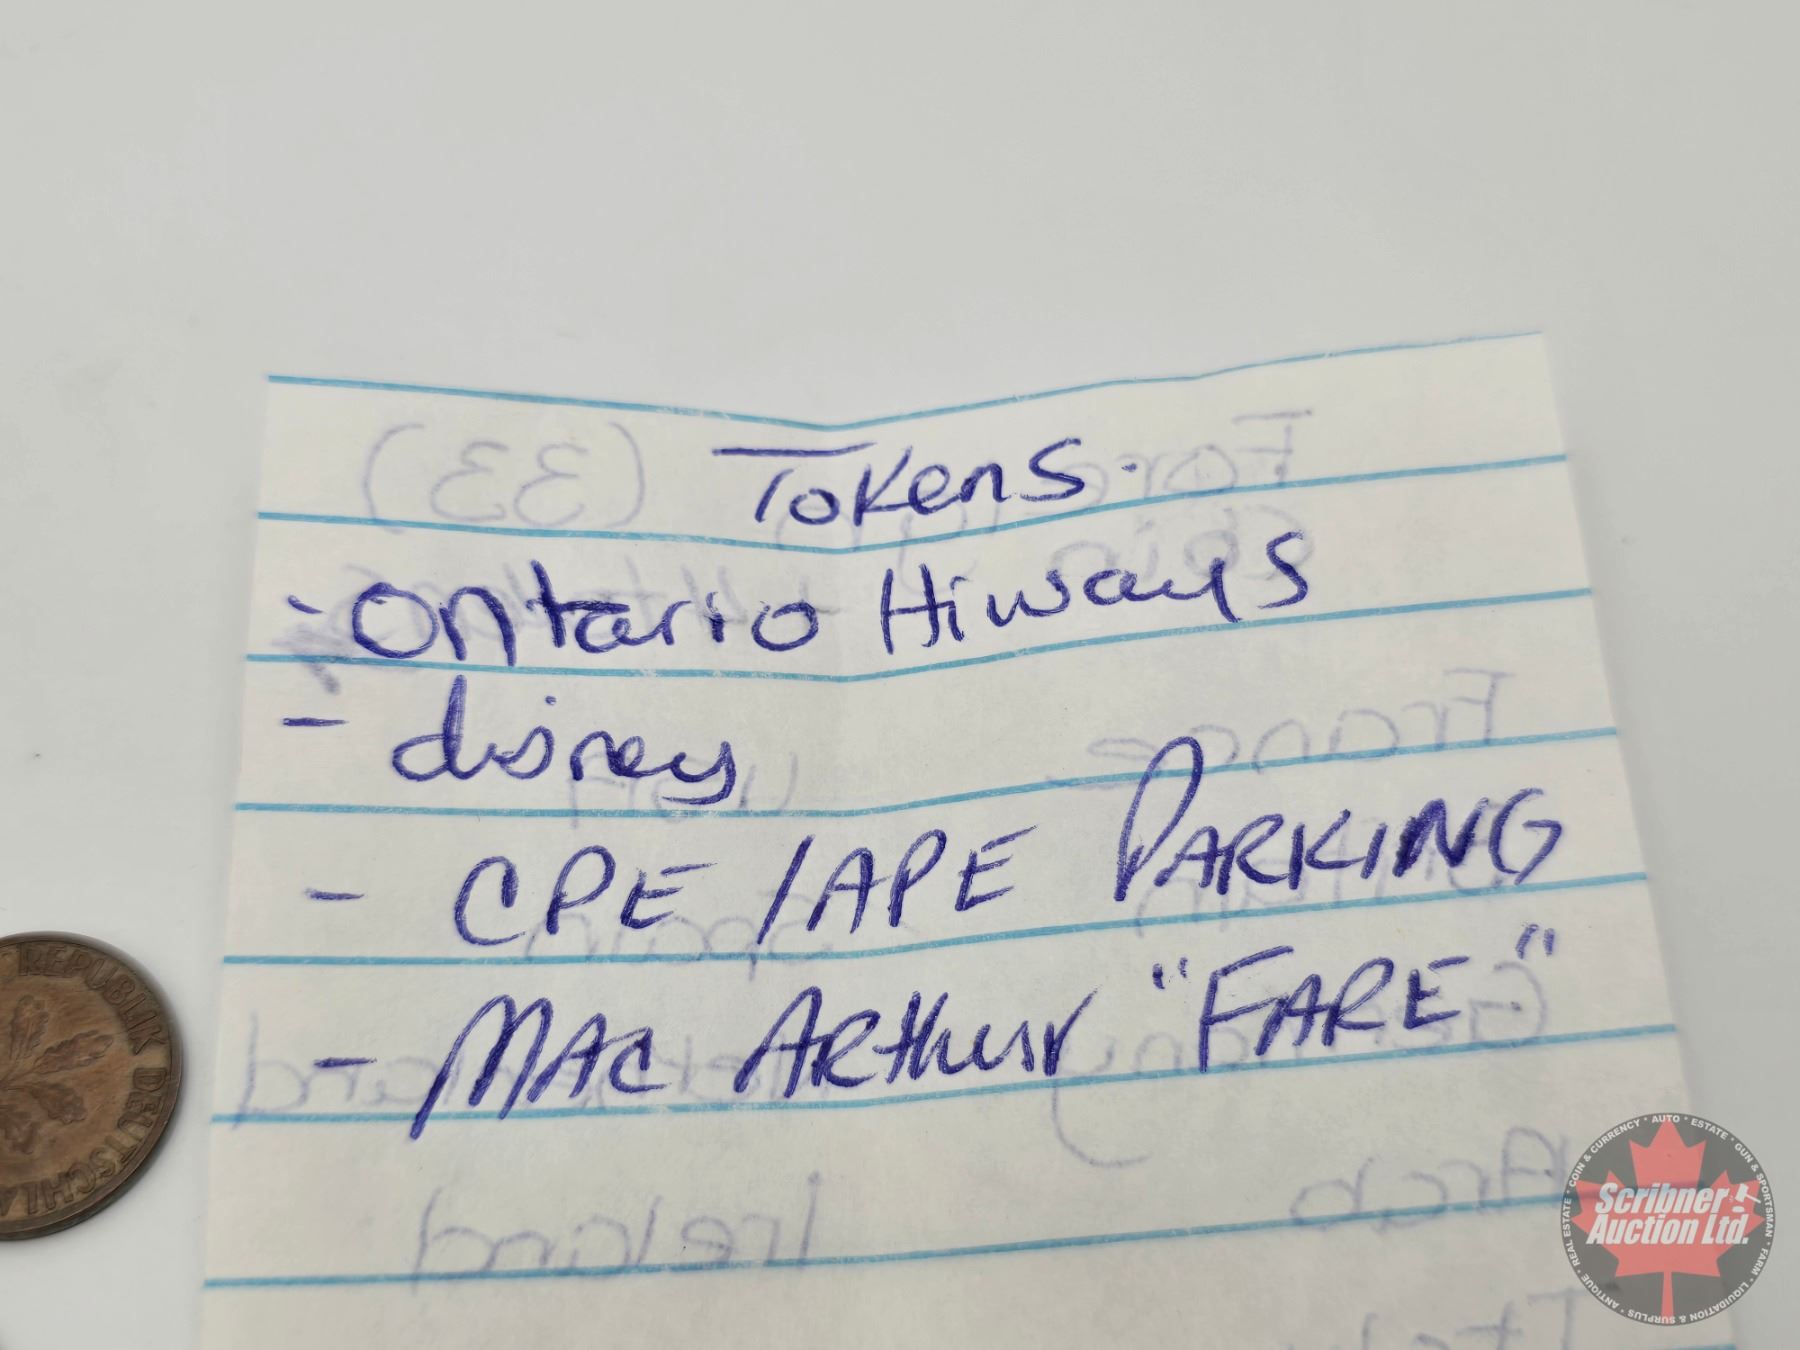 Tokens.
- Ontario Hiways
- disney
- CPE / APE PARKING
- MAC ARthur "FARE"
REPUBLIK DEUTSCHLA
(33)
France
USA
Spain
Germany
Arab
Ireland
Scribner
Auction Ltd.
COIN & CURRENCY * AUTO * ESTATE * GUN & SPORTSMAN * FARM * LIQUIDATION & SURPLUS * ANTIQUE * REAL ESTATE *